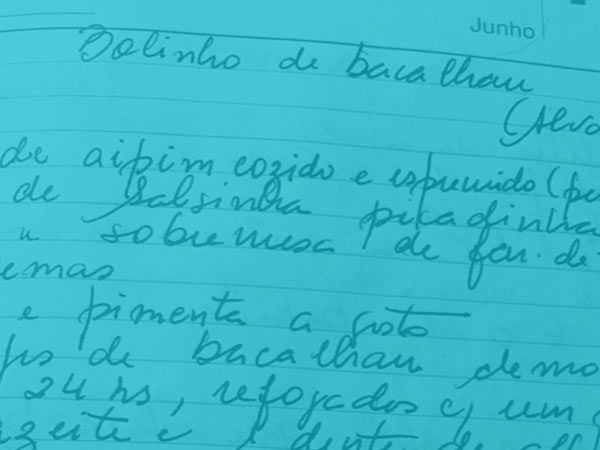 Junho
Bolinho de bacalhau
(Alva
de aipim cozido e espremido (pe
de salsinha picadinha
" sobremesa de far. de
emas
e pimenta a gosto
de bacalhau demo
24 hs, refogados c/ um
azeite e 1 dente de al